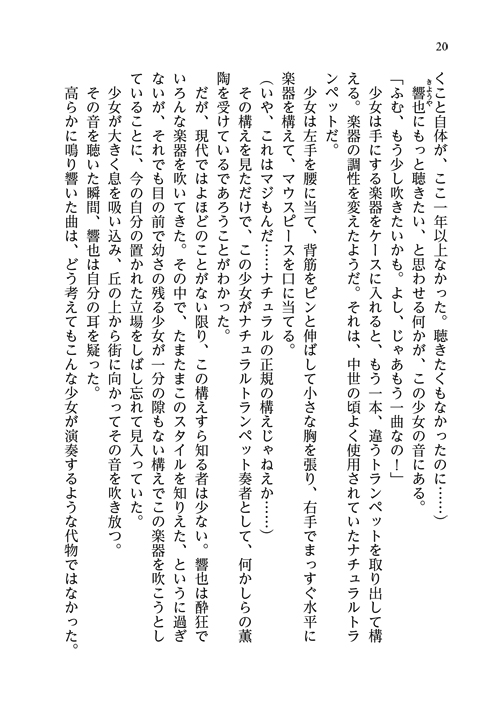 20
くこと自体が、ここ一年以上なかった。聴きたくもなかったのに……）
きょうや
響也にもっと聴きたい、と思わせる何かが、この少女の音にある。
「ふむ、もう少し吹きたいかも。よし、じゃあもう一曲なの！」
少女は手にする楽器をケースに入れると、もう一本、違うトランペットを取り出して構
える。楽器の調性を変えたようだ。それは、中世の頃よく使用されていたナチュラルトラ
ンペットだ。
少女は左手を腰に当て、背筋をピンと伸ばして小さな胸を張り、右手でまっすぐ水平に
楽器を構えて、マウスピースを口に当てる。
（いや、これはマジもんだ……ナチュラルの正規の構えじゃねえか……）
その構えを見ただけで、この少女がナチュラルトランペット奏者として、何かしらの薫
陶を受けているであろうことがわかった。
だが、現代ではよほどのことがない限り、この構えすら知る者は少ない。響也は酔狂で
いろんな楽器を吹いてきた。その中で、たまたまこのスタイルを知りえた、というに過ぎ
ないが、それでも目の前で幼さの残る少女が一分の隙もない構えでこの楽器を吹こうとし
ていることに、今の自分の置かれた立場をしばし忘れて見入っていた。
少女が大きく息を吸い込み、丘の上から街に向かってその音を吹き放つ。
その音を聴いた瞬間、響也は自分の耳を疑った。
高らかに鳴り響いた曲は、どう考えてもこんな少女が演奏するような代物ではなかった。